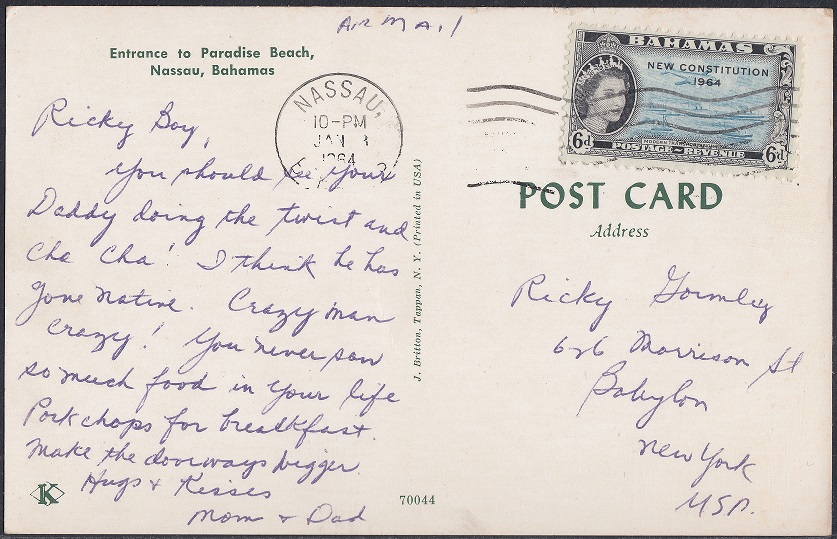 Air Mail
Entrance to Paradise Beach,
Nassau, Bahamas
NASSAU,
10-PM
JAN
1964
BAHAMAS
NEW CONSTITUTION
1964
6d
POSTAGE & REVENUE
6d
Ricky Boy,
You should see your
Daddy doing the twist and
Cha Cha! I think he has
gone native. Crazy man
Crazy! You never saw
so much food in your life
Pork chops for breakfast.
Make the doorways bigger.
Hugs + Kisses
Mom & Dad
K
70044
J. Britton, Tappan, N. Y. (Printed in USA)
POST CARD
Address
Ricky Gormley
626 Morrison St
Babylon
New York
USA.